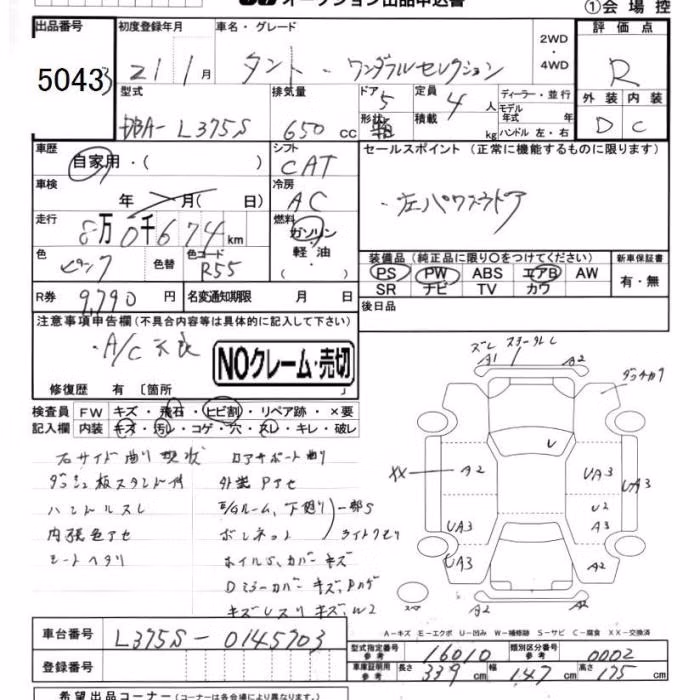 オークション出品申込書 ①会場控
出品番号 初度登録年月 車名・グレード 2WD・4WD 評価点
5043 21 1月 タント・ワンダフルセレクション R
型式 排気量 ドア 5 定員 4人 ディーラー・並行 外装 内装
DBA-L375S 650cc 形状 箱 積載 kg モデル年式 年 ハンドル 左・右 D C
車歴 自家用・( ) シフト CAT セールスポイント (正常に機能するものに限ります)
車検 年 月( 日) 冷房 AC ・左パワスラドア
走行 8万0千674km 燃料 ガソリン・軽油・( )
色 ピンク 色替 色コード R55
装備品(純正品に限り〇をつけてください) 新車保証書
PS PW ABS エアB AW 有・無
SR ナビ TV カワ
R券 9,790円 名変通知期限 月 日 後日品
注意事項申告欄(不具合内容等は具体的に記入して下さい)
・A/C不良
NOクレーム・売切
修復歴 有 〔箇所 〕
検査員 FW キズ・飛石・ヒビ割・リペア跡・×要
記入欄 内装 キズ・汚レ・コゲ・穴・スレ・キレ・破レ
右サイド曲り現状 コアサポート曲り
ダッシュ板スタンド付 外装Pアセ
ハンドルスレ E/Gルーム、下廻り 一部S
内張色アセ ボンネット ライトクモリ
シートヘタリ ホイルS、カバーキズ
Dミラーカバーキズ、Pハゲ
ズレ
A1 A2
U
XX A2 UA3 UA3
U2
UA3 A3
UA3 UA3
A2 A2
A-キズ E-エクボ U-凹み W-補修跡 S-サビ C-腐食 XX-交換済
車台番号 L375S-0145703
型式指定番号 参考 16010 類別区分番号 参考 0002
登録番号 車庫証明用 参考 長さ 339cm 幅 147cm 高さ 175cm
希望出品コーナー(コーナーは各会場により異なります。)